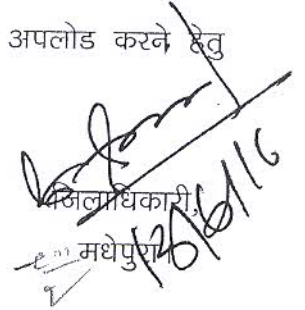 अपलोड करने हेतु
जिलाधिकारी,
मधेपुरा।
13/6/16